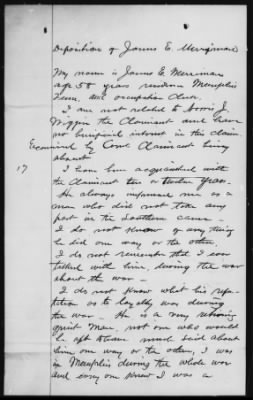 Deposition of James E. Merriman
My name is James E. Merriman
age 58 years residence Memphis
Tenn, and occupation Clerk.
I am not related to J.
Wiggin the Claimant and have
no beneficial interest in this claim.
Examined by Coml Claimant being
absent
17 I have been acquainted with
the Claimant ten or twelve years.
He always impressed me as a
man who did not take any
part in the Southern cause.
I do not know of any thing
he did one way or the other.
I do not remember that I ever
talked with him during the war
about the war.
I do not know what his repu-
tation as to loyalty was during
the war. He is a very retiring
quiet man, not one who would
be apt to have much said about
him one way or the other, I was
in Memphis during the whole war
and every one knew I was a